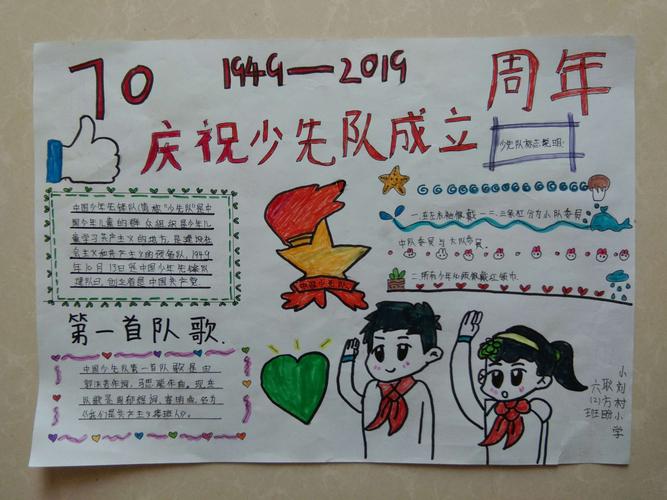 70
1949—2019
周年
庆祝少先队成立
少先队标志说明:
中国少年先锋队(简称"少先队")是中
国少年儿童的群众组织是少年儿
童学习共产主义的地方,是建设社
会主义和共产主义的预备队,1949
年10月13日是中国少年先锋队
建队日,创立者是中国共产党.
一.在左衣袖佩戴一.二.三条杠分为小队委员
中队委员与大队委员.
二.所有少年如佩戴红领巾.
中国少先队
第一首队歌.
中国少先队第一首队歌是由
郭沫若作词,马思聪作曲.现在
队歌是周郁辉词,寄明曲,名为
《我们是共产主义接班人》.
小刘村小学
耿方明
六(2)班